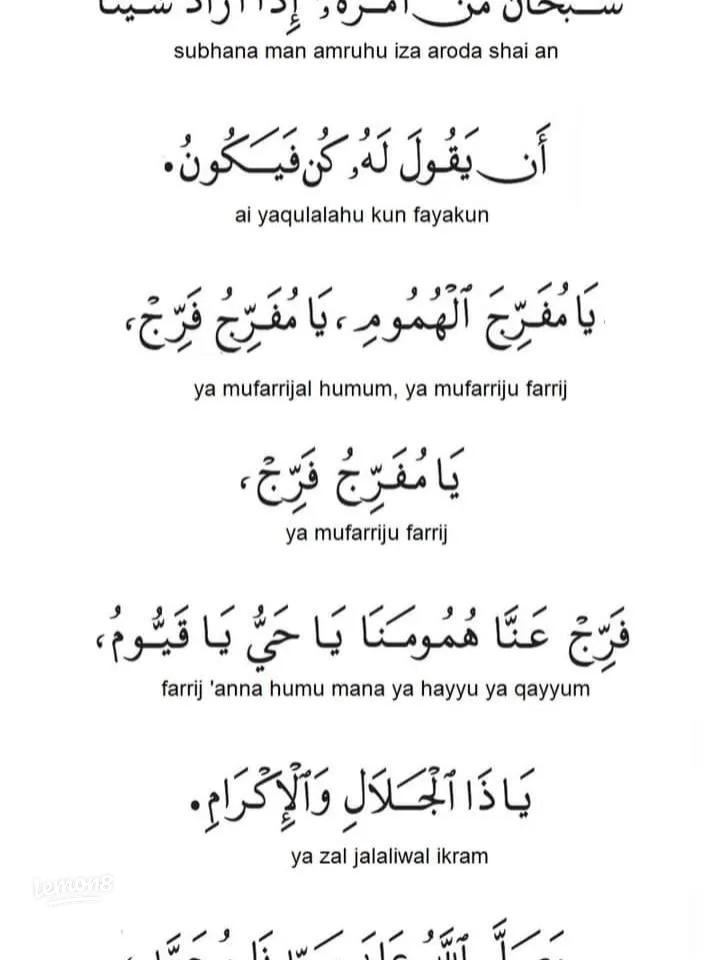 سُبْحَانَ مَنْ أَمْرُهُ, إِذَا أَرَادَ شَيْئًا
subhana man amruhu iza aroda shai an
أَن يَقُولَ لَهُ, كُن فَيَكُونُ.
ai yaqulalahu kun fayakun
يَا مُفَرِّجَ ٱلْهُمُومِ، يَا مُفَرِّجُ فَرِّجْ،
ya mufarrijal humum, ya mufarriju farrij
يَا مُفَرِّجُ فَرِّجْ،
ya mufarriju farrij
فَرِّجْ عَنَّا هُمُومَنَا يَا حَيُّ يَا قَيُّومُ،
farrij 'anna humu mana ya hayyu ya qayyum
يَا ذَا ٱلْجَلَالِ وَٱلْإِكْرَامِ.
ya zal jalaliwal ikram
lemon8